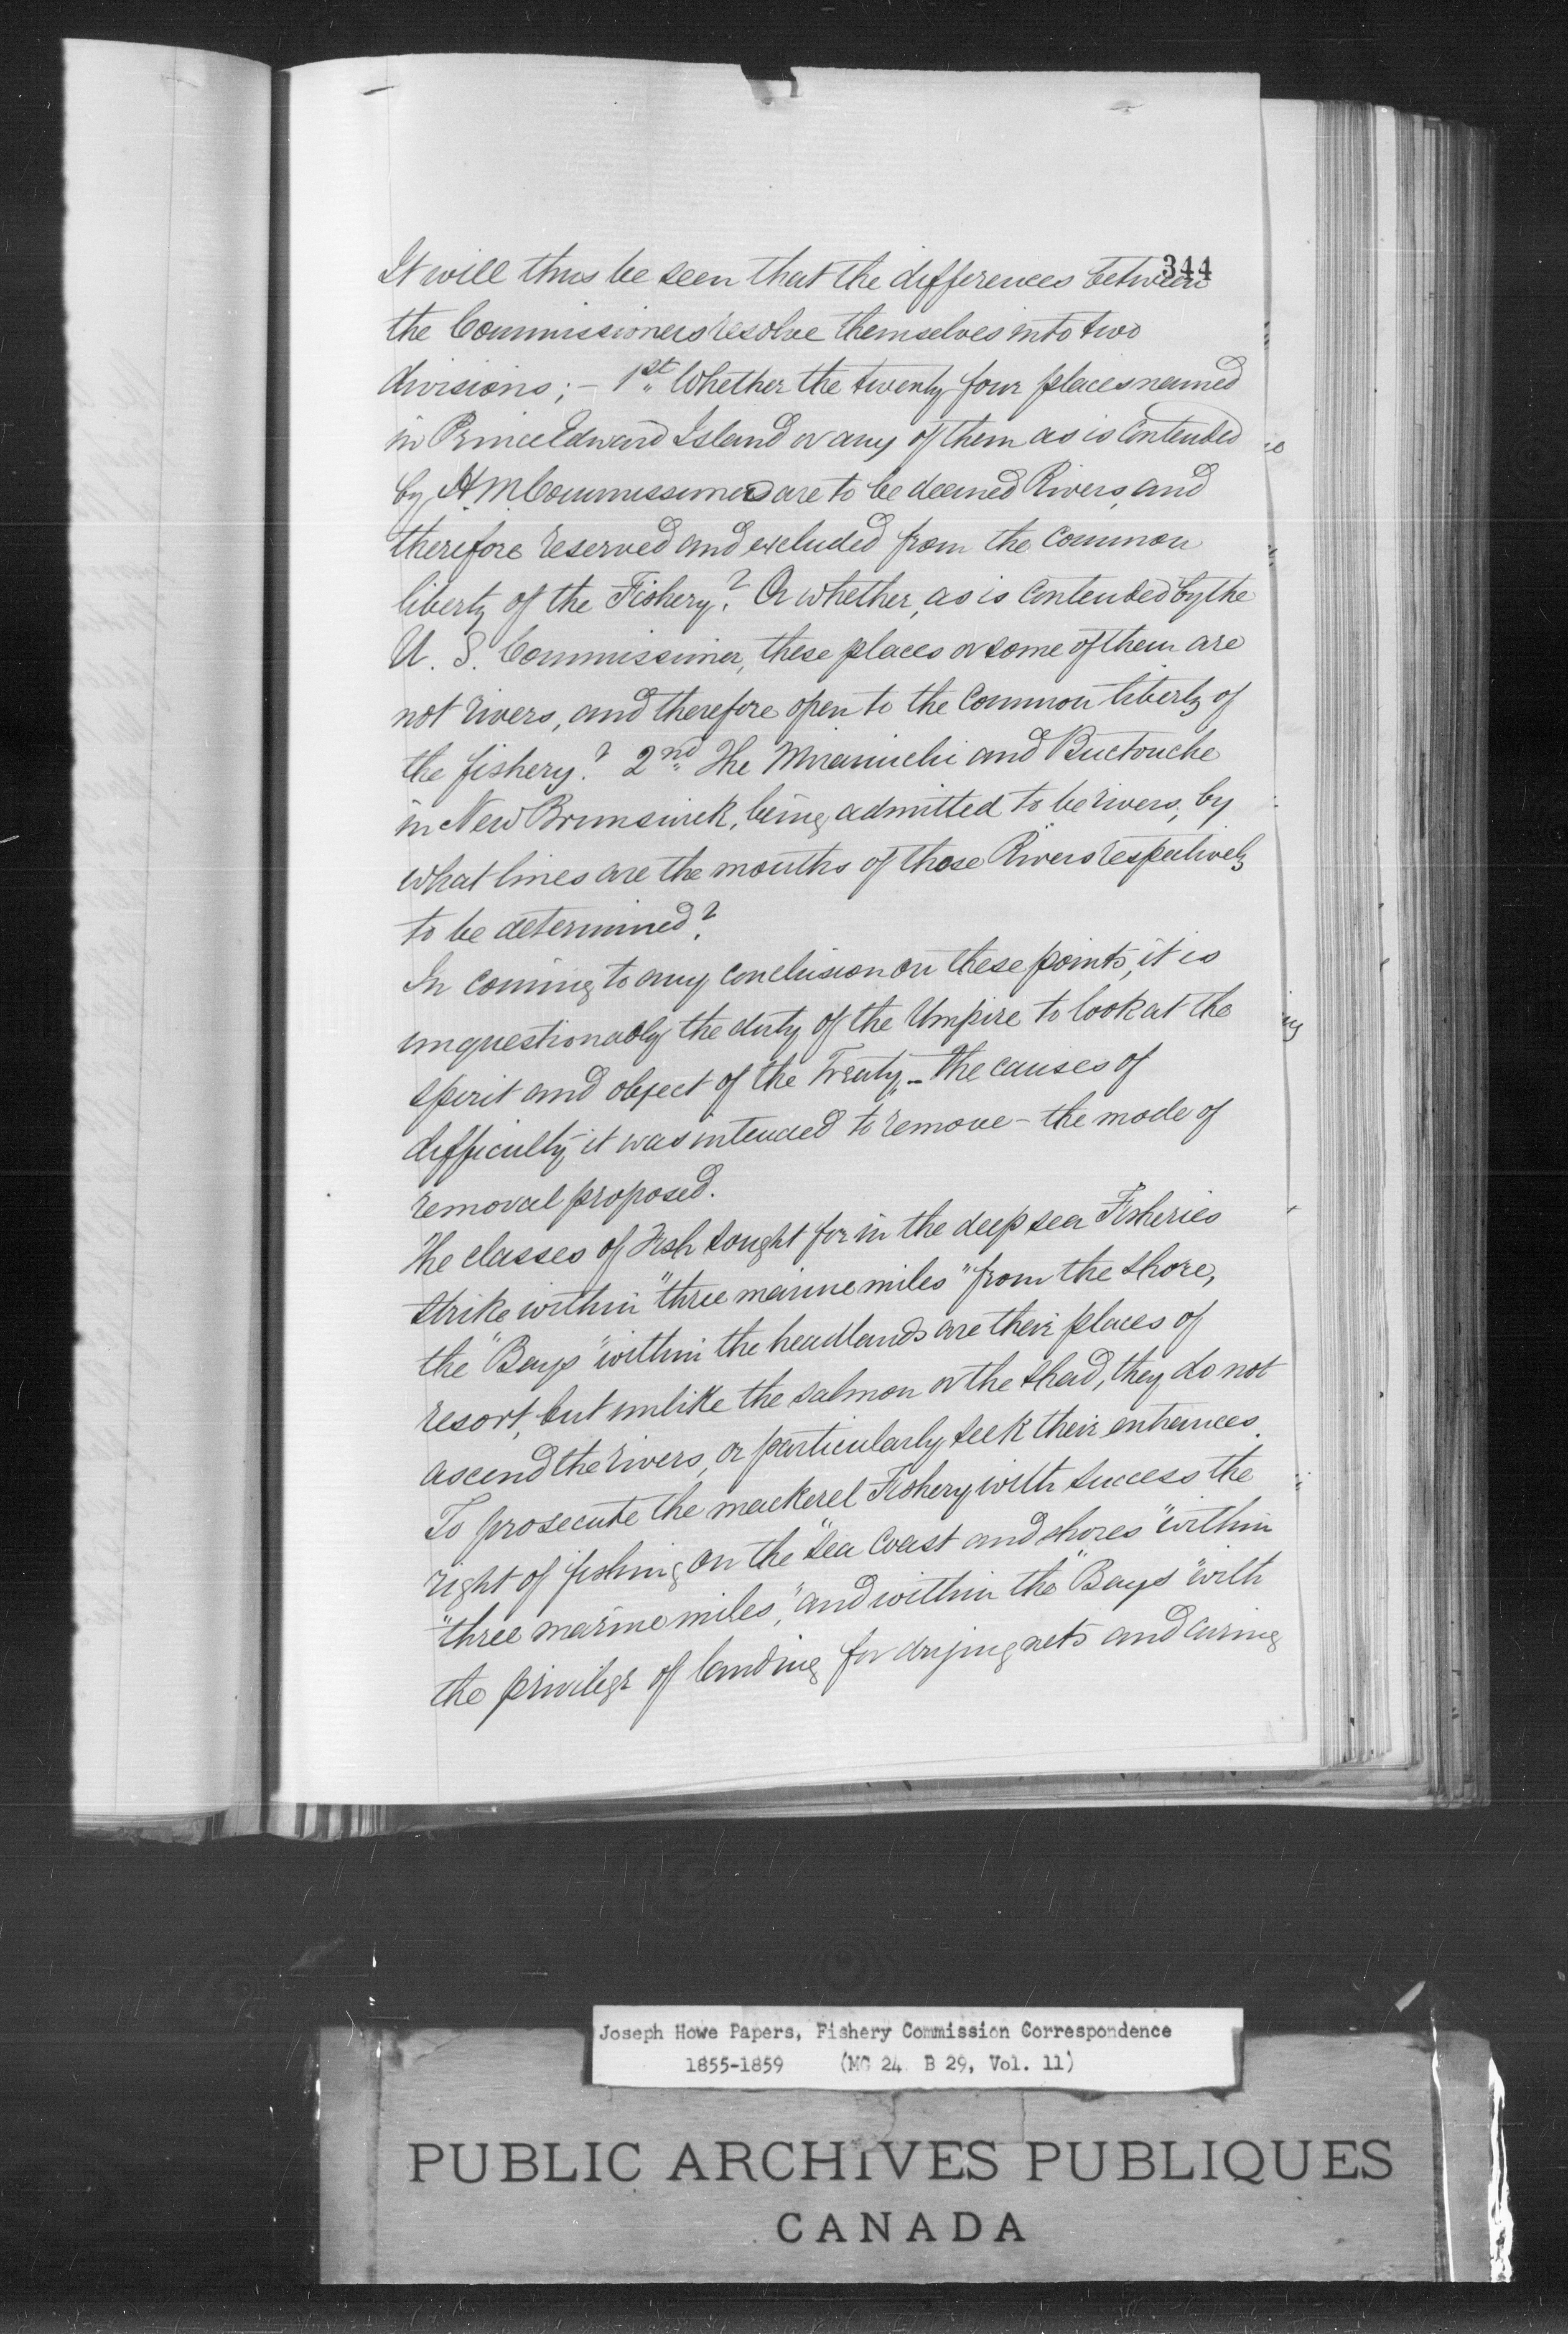 344
It will thus be seen that the differences between
the Commissioners resolve themselves into two
divisions; - 1st. Whether the twenty four places named
in Prince Edward Island or any of them as is contended
by H. M. Commissioners are to be deemed Rivers, and
therefore reserved and excluded from the common
liberty of the Fishery? Or whether, as is contended by the
U. S. Commissioner, these places or some of them are
not rivers, and therefore open to the common liberty of
the fishery? 2nd. The Miramichi and Buctouche
in New Brunswick, being admitted to be rivers, by
what lines are the mouths of those Rivers respectively
to be determined?
In coming to any conclusion on these points, it is
unquestionably the duty of the Umpire to look at the
spirit and object of the Treaty, - the causes of
difficulty it was intended to remove - the mode of
removal proposed.
The classes of Fish sought for in the deep sea Fisheries
strike within "three marine miles" from the shore,
the "Bays" within the headlands are their places of
resort, but unlike the salmon or the shad, they do not
ascend the rivers, or particularly seek their entrances.
To prosecute the mackerel Fishery with success the
right of fishing on the "sea coast and shores" within
"three marine miles," and within the "Bays" with
the privilege of landing for drying nets and curing
Joseph Howe Papers, Fishery Commission Correspondence
1855-1859 (MG 24 B 29, Vol. 11)
PUBLIC ARCHIVES PUBLIQUES
CANADA